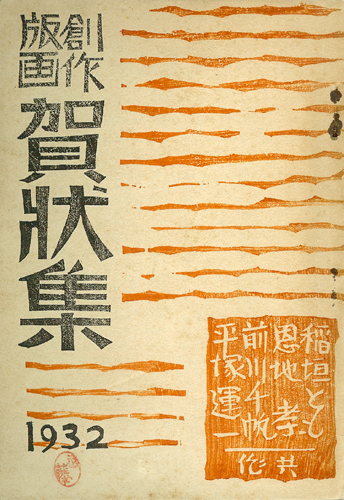 創作
版画
賀状集
1932
稲垣とも
恩地孝
前川千帆
平塚運一
共作